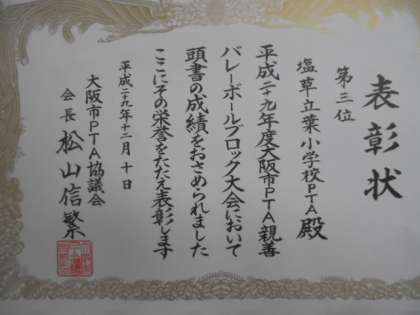 表彰状
第三位
塩草立葉小学校PTA殿
平成二十九年度大阪市PTA親善
バレーボールブロック大会において
頭書の成績をおさめられました
ここにその栄誉をたたえ表彰します
平成二十九年十二月十日
大阪市PTA協議会
会長 松山信繁